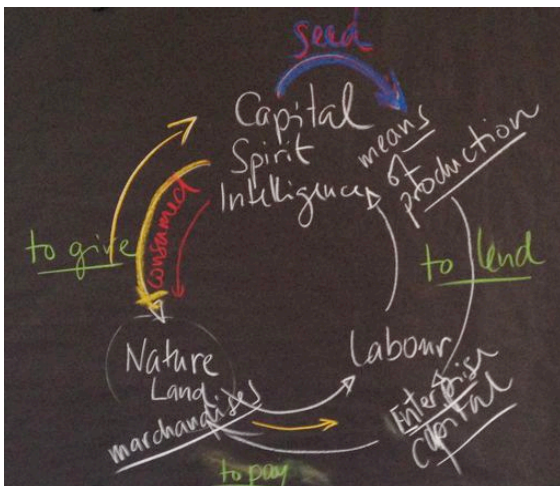 seed
Capital
Spirit
Intelligence
means
of
production
to give
consumed
to lend
Nature
Land
marchandises
Labour
Enterprise
capital
to pay